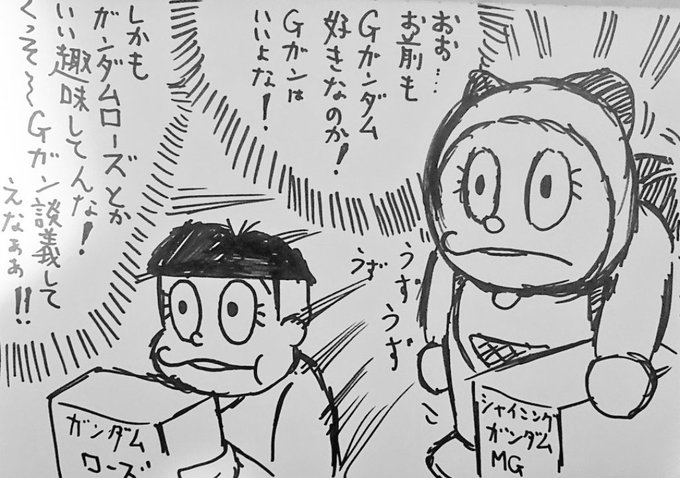 おお…
お前も
Gガンダム
好きなのか!
Gガンは
いいよな!
しかも
ガンダムローズとか
いい趣味してんな!
くっそ〜Gガン談義して
えなぁぁ!!
うず
うず
うず
ガンダム
ローズ
シャイニング
ガンダム
MG